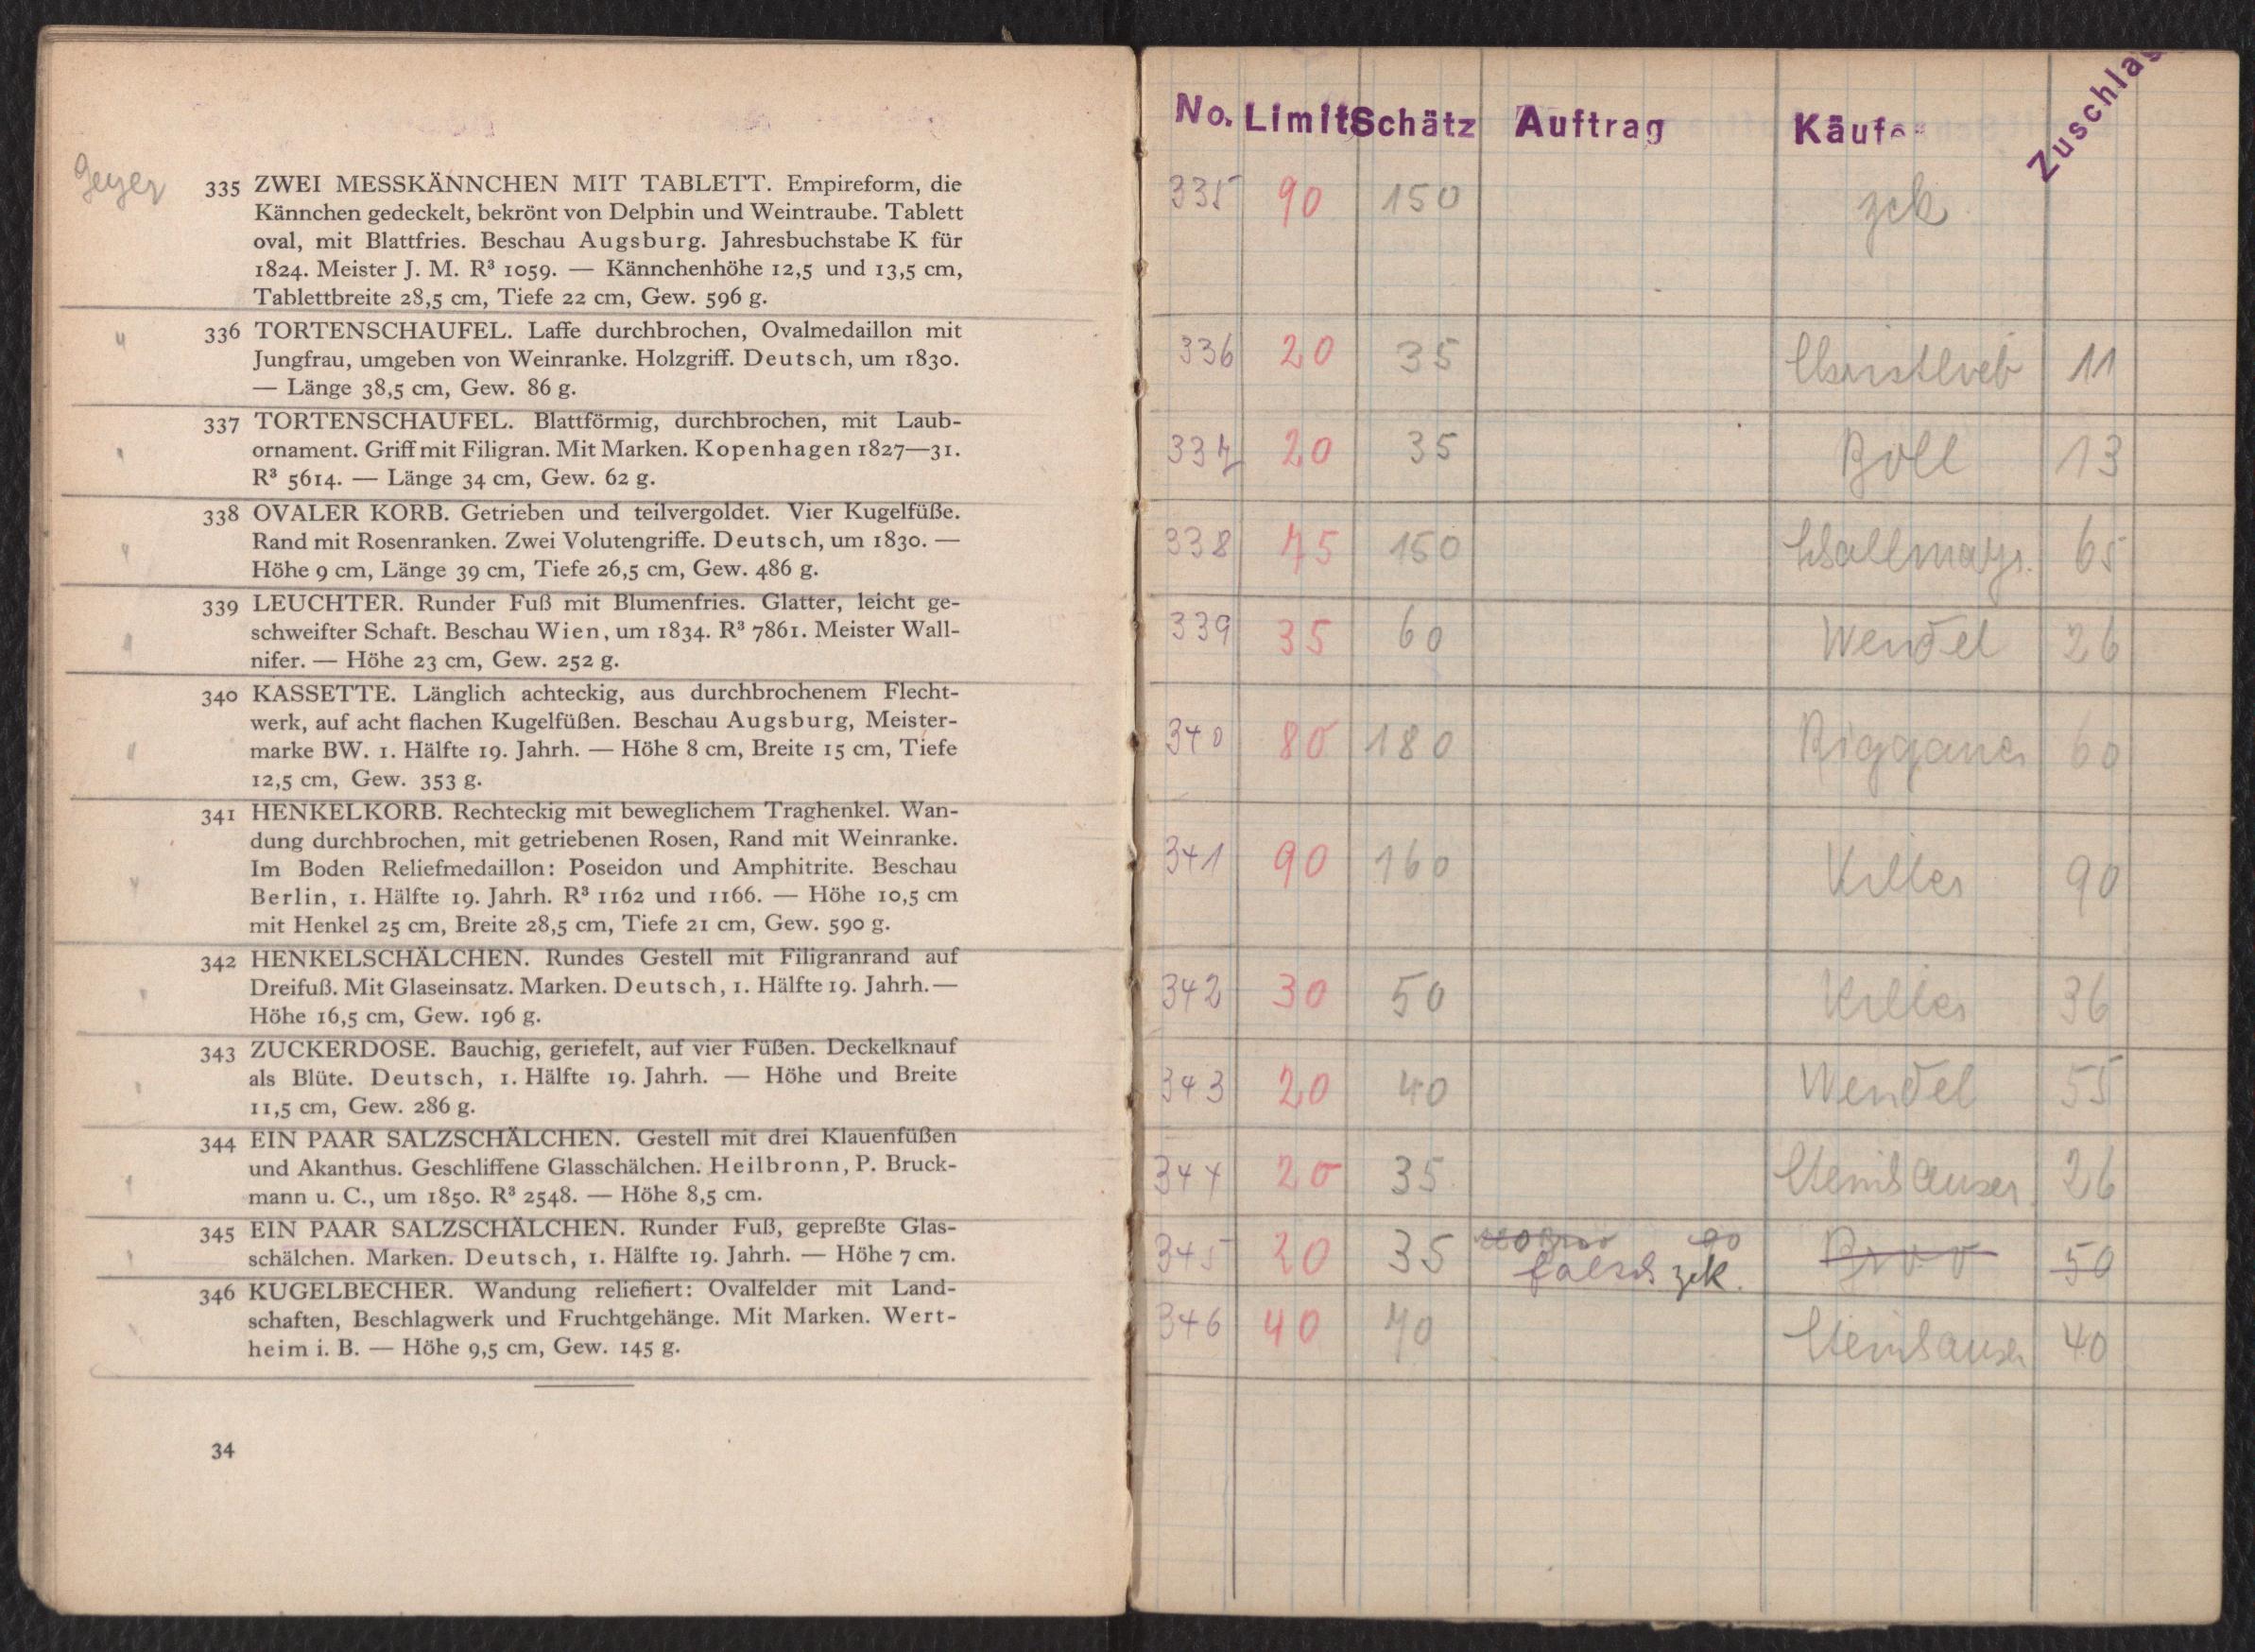 Geyer
335 ZWEI MESSKÄNNCHEN MIT TABLETT. Empireform, die
Kännchen gedeckelt, bekrönt von Delphin und Weintraube. Tablett
oval, mit Blattfries. Beschau Augsburg. Jahresbuchstabe K für
1824. Meister J. M. R³ 1059. — Kännchenhöhe 12,5 und 13,5 cm,
Tablettbreite 28,5 cm, Tiefe 22 cm, Gew. 596 g.
" 336 TORTENSCHAUFEL. Laffe durchbrochen, Ovalmedaillon mit
Jungfrau, umgeben von Weinranke. Holzgriff. Deutsch, um 1830.
— Länge 38,5 cm, Gew. 86 g.
337 TORTENSCHAUFEL. Blattförmig, durchbrochen, mit Laub-
ornament. Griff mit Filigran. Mit Marken. Kopenhagen 1827—31.
R³ 5614. — Länge 34 cm, Gew. 62 g.
338 OVALER KORB. Getrieben und teilvergoldet. Vier Kugelfüße.
Rand mit Rosenranken. Zwei Volutengriffe. Deutsch, um 1830. —
Höhe 9 cm, Länge 39 cm, Tiefe 26,5 cm, Gew. 486 g.
339 LEUCHTER. Runder Fuß mit Blumenfries. Glatter, leicht ge-
schweifter Schaft. Beschau Wien, um 1834. R³ 7861. Meister Wall-
nifer. — Höhe 23 cm, Gew. 252 g.
340 KASSETTE. Länglich achteckig, aus durchbrochenem Flecht-
werk, auf acht flachen Kugelfüßen. Beschau Augsburg, Meister-
marke BW. 1. Hälfte 19. Jahrh. — Höhe 8 cm, Breite 15 cm, Tiefe
12,5 cm, Gew. 353 g.
341 HENKELKORB. Rechteckig mit beweglichem Traghenkel. Wan-
dung durchbrochen, mit getriebenen Rosen, Rand mit Weinranke.
Im Boden Reliefmedaillon: Poseidon und Amphitrite. Beschau
Berlin, 1. Hälfte 19. Jahrh. R³ 1162 und 1166. — Höhe 10,5 cm
mit Henkel 25 cm, Breite 28,5 cm, Tiefe 21 cm, Gew. 590 g.
342 HENKELSCHÄLCHEN. Rundes Gestell mit Filigranrand auf
Dreifuß. Mit Glaseinsatz. Marken. Deutsch, 1. Hälfte 19. Jahrh. —
Höhe 16,5 cm, Gew. 196 g.
343 ZUCKERDOSE. Bauchig, geriefelt, auf vier Füßen. Deckelknauf
als Blüte. Deutsch, 1. Hälfte 19. Jahrh. — Höhe und Breite
11,5 cm, Gew. 286 g.
344 EIN PAAR SALZSCHÄLCHEN. Gestell mit drei Klauenfüßen
und Akanthus. Geschliffene Glasschälchen. Heilbronn, P. Bruck-
mann u. C., um 1850. R³ 2548. — Höhe 8,5 cm.
345 EIN PAAR SALZSCHÄLCHEN. Runder Fuß, gepreßte Glas-
schälchen. Marken. Deutsch, 1. Hälfte 19. Jahrh. — Höhe 7 cm.
346 KUGELBECHER. Wandung reliefiert: Ovalfelder mit Land-
schaften, Beschlagwerk und Fruchtgehänge. Mit Marken. Wert-
heim i. B. — Höhe 9,5 cm, Gew. 145 g.
34
No. Limit Schätz Auftrag Käufe Zuschlag
335 90 150 zck
336 20 35 Christlieb 11
337 20 35 Böll 13
338 75 150 Wallmayr. 65
339 35 60 Wendel 26
340 80 180 60
341 90 160 Killer 90
342 30 50 Killer 36
343 20 40 Wendel 55
344 20 35 Steinhauser 26
345 20 35 50
falsch zck.
346 40 70 Steinhauser 40